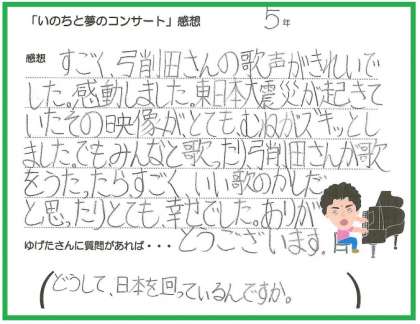 「いのちと夢のコンサート」感想 5年
感想 すごく、弓削田さんの歌声がきれいで
した。感動しました。東日本大震災が起きて
いたその映像が、とても、むねがズキッとし
ました。でもみんなと歌ったり弓削田さんが歌
をうたったら、すごく、いい歌のかしだ
と思ったりとても、幸せでした。ありが
とうございます。
ゆげたさんに質問があれば・・・
(どうして、日本を回っているんですか。)